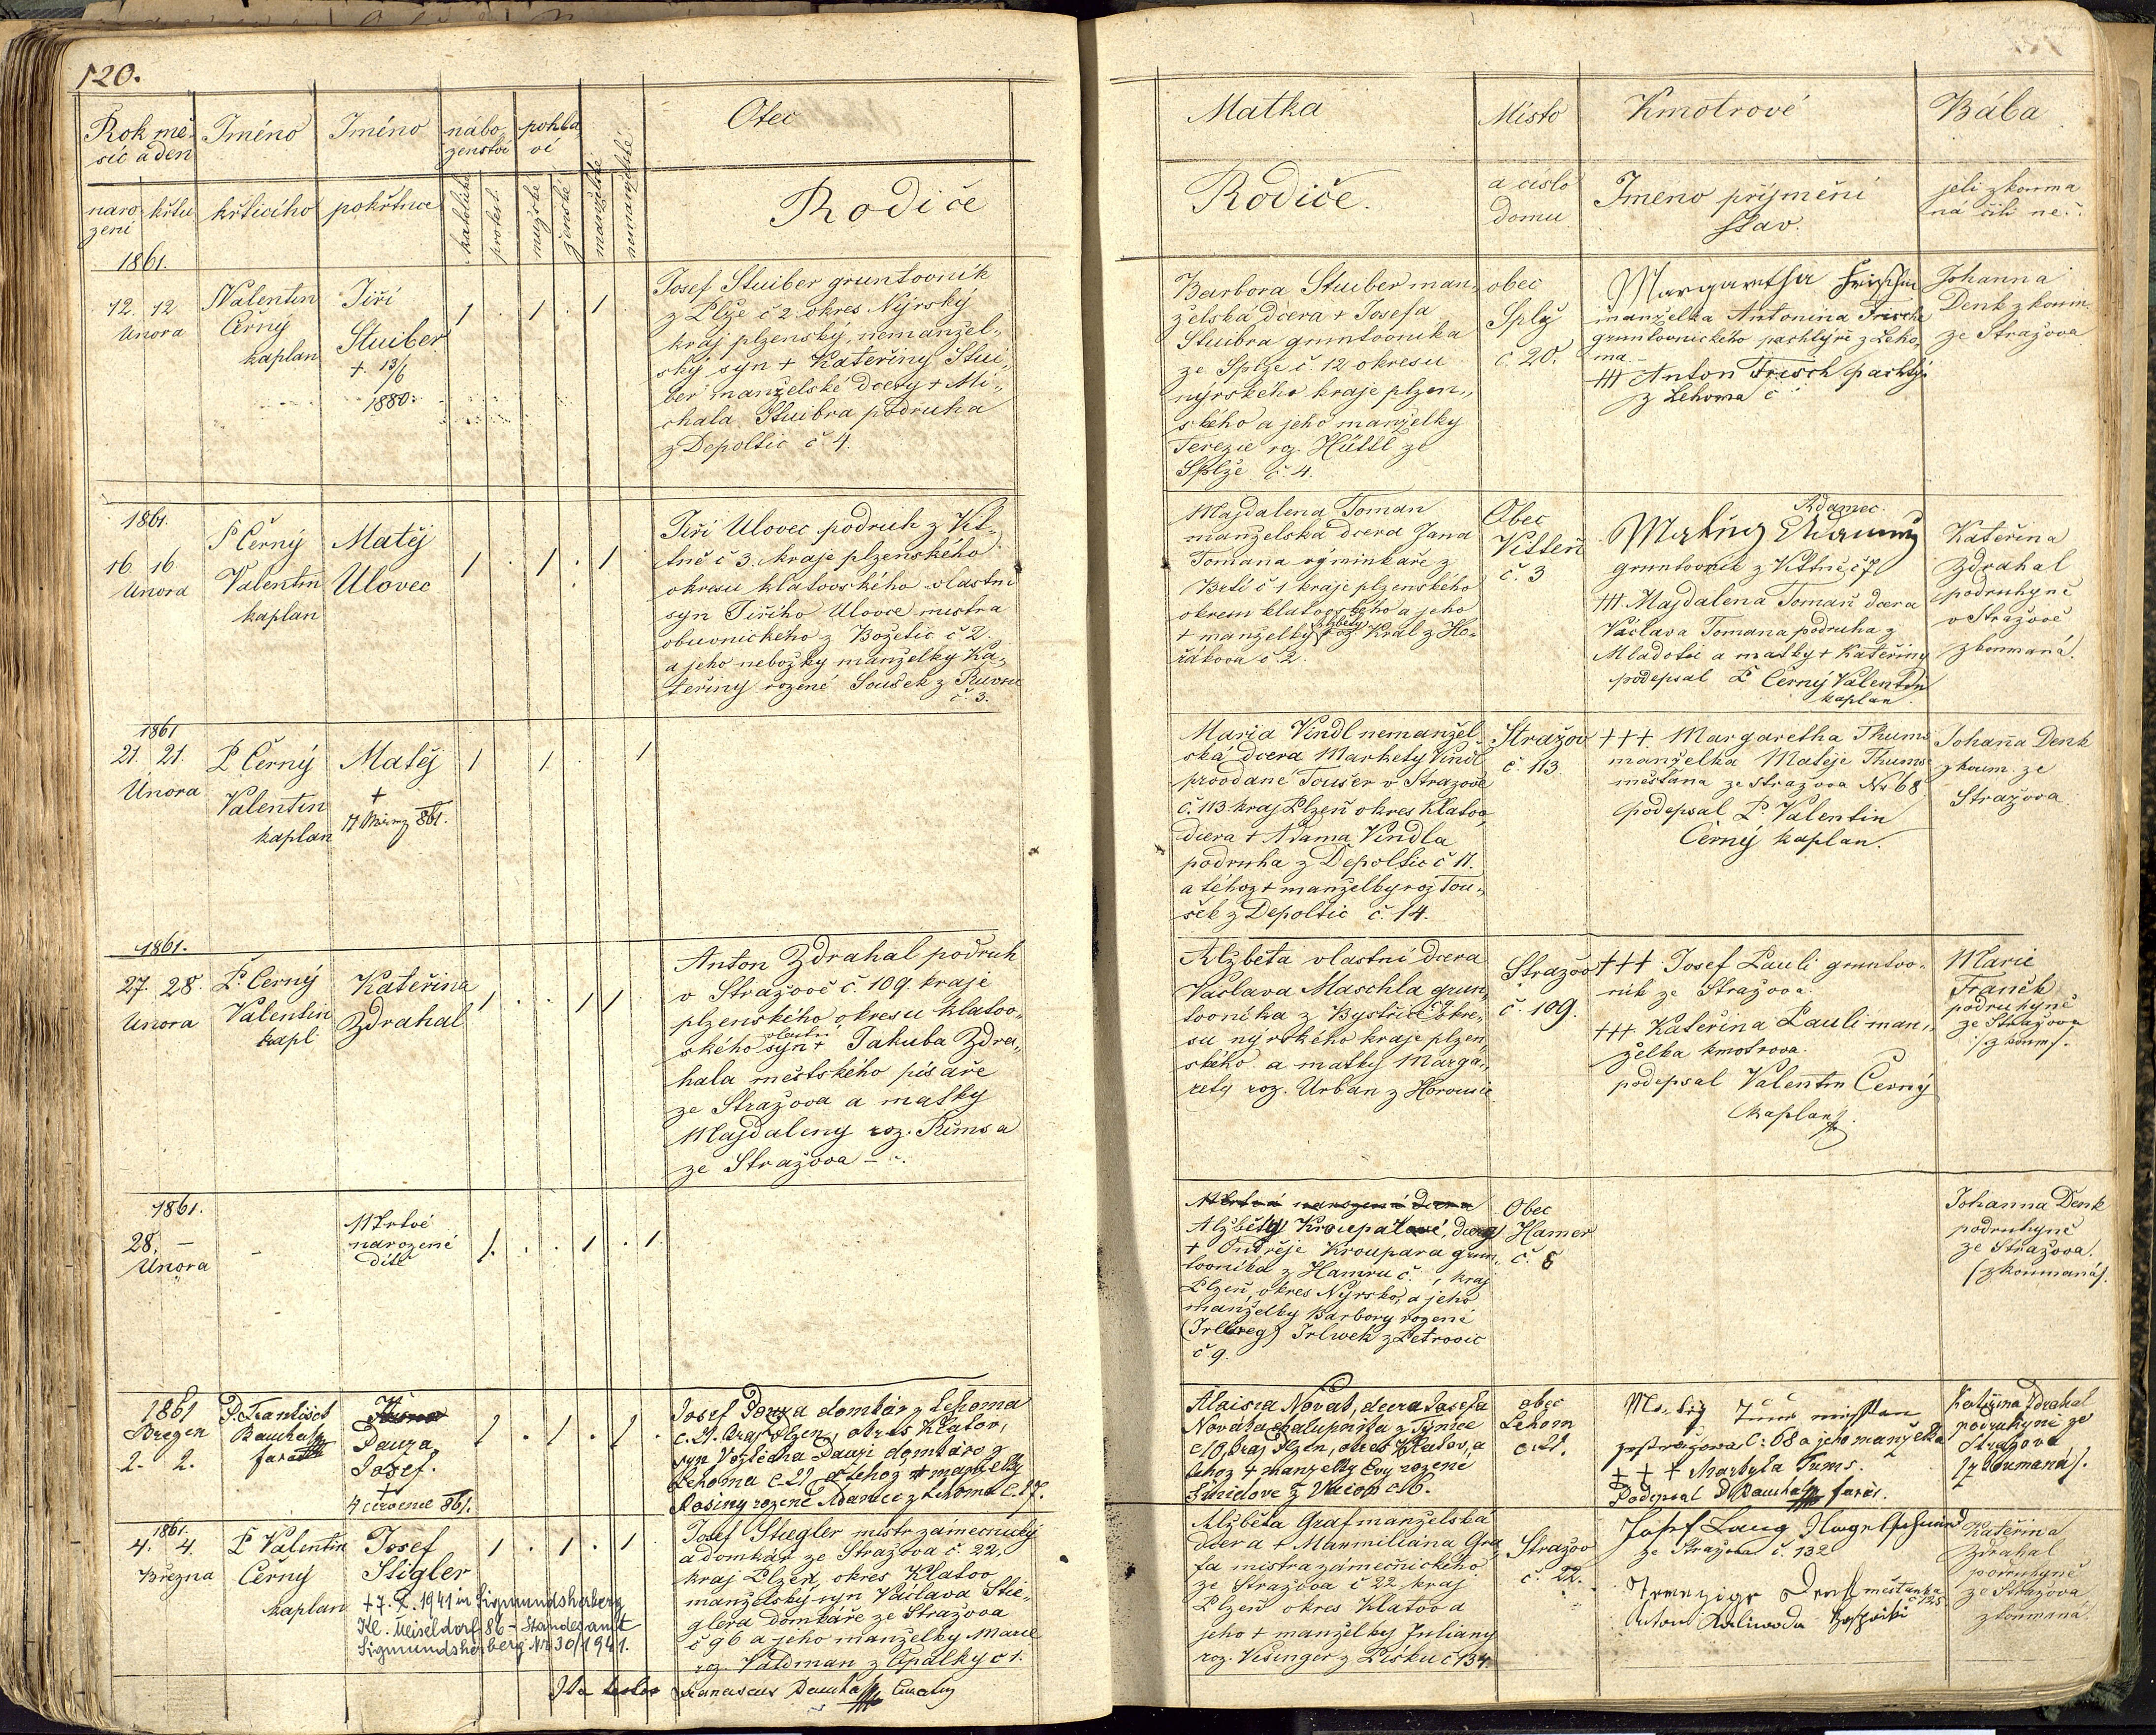 120.
Rok mě-
síc a den
Jméno
Jméno
nábo-
ženství
pohla-
ví
Otec
naro
zení
křtu
křtícího
pokřtěnce
katolické
protest.
mužské
ženské
manželské
nemanželské
Rodiče
Matka
Místo
Kmotrové
Bába
Rodiče.
a číslo
domu
Jmeno příjmení
stav.
jeli zkouma
ná čili ne.
1861.
12. 12
Února
Valentin
Černý
kaplan
Jiří
Stuiber
+ 13/6
1880.
Josef Stuiber gruntovník
z Plže č 2 okres Nýrský
kraj plzenský, nemanžel-
ský syn + Kateřiny Stui-
ber manželské dcery + Mi-
chala Stuibra podruha
z Depoltic č. 4.
Barbora Stuiber man-
želská dcera + Josefa
Stuibra gruntovníka
ze Splže č. 12 okresu
nýrského kraje plzen-
ského a jeho manželky
Terezie roz. Hüttl ze
Splže č. 4.
obec
Splž
č 20.
Margaretha Frisch
manželka Antonína Frische
gruntovnického pachtýře z Leho-
ma.
+++ Anton Frisch pachtýř
z Lehoma č
Johanna
Denk zkoum.
ze Stražova
1861.
16. 16
Února
P Černý
Valentin
kaplan
Matěj
Ulovec
Jiří Ulovec podruh z Vit-
tně č 3. kraje plzenského
okresu klatovského vlastní
syn Jiřího Ulovce mistra
obuvnického z Božetic č 2.
a jeho nebožky manželky Ka-
teřiny rozené Souček z
č 3.
Majdalena Toman
manželská dcera Jana
Tomana
Brtí č 1 kraje plzenského
okresu klatovského a jeho
+ manželky Alžběty roz Kral z Ho-
řákova č. 2.
Obec
Vitteň
č. 3
Adamec.
gruntovník z Vittně č 7
+++ Majdalena Toman dcera
Václava Tomana podruha z
Mladotic a matky + Kateřiny
podepsal P Černý Valentin
kaplan.
Kateřina
Zdrahal
podruhyně
v Stražově
zkoumaná.
1861
21. 21.
Února
P Černý
Valentin
kaplan
Matěj
+
861.
Maria Vindl nemanžel
ská dcera Markety Vindl
provdané Toušer v Stražově
č. 113 kraj Plzeň okres Klatov,
dcera + Adama Vindla
podruha z Depoltic č 11.
a téhož + manželky roz Tou-
ček z Depoltic č. 14.
Stražov
č. 113.
+++ Margaretha Thums
manželka Matěje Thums
měšťana ze Stražova Nr 68
podepsal P. Valentin
Černý kaplan.
Johana Denk
zkoum. ze
Stražova
1861.
27. 28.
Února
P. Černý
Valentin
kapl
Kateřina
Zdrahal
Anton Zdrahal podruh
v Stražově č. 109 kraje
plzenského, okresu klatov-
ského vlastní syn + Jakuba Zdra-
hala městského písaře
ze Stražova a matky
Majdaleny roz. Římsa
ze Stražova
Alžběta vlastní dcera
Václava Maschla grun-
tovníka z Bystřice okre-
su nýrského kraje plzen-
ského a matky Marga-
rety roz. Urban z
Stražov
č. 109.
+++ Josef Pauli gruntov-
ník ze Stražova.
+++ Kateřina Pauli man-
želka kmotrova.
podepsal Valentin Černý
kaplan
Marie
Franěk
podruhyně
ze Stražova
/zkoum/.
1861.
28. —
Února
Mrtvé
narozené
dítě
Mrtvá narozená dcera
Alžběty Kroupařové, dcery
+ Ondřeje Kroupara grun-
tovníka z Hamru č. , kraj
Plzeň, okres Nýrsko, a jeho
manželky Barbory rozené
(Irlweg) Irlwek z Petrovic
č. 9.
Obec
Hamer
č. 8
Johanna Denk
podruhyně
ze Stražova.
(zkoumaná).
1861
Brezen
2. 2.
P. František
farář
Pauza
Josef.
+
4 července 861.
Josef Pauza domkář z Lehoma
č. 21. kraj Plzen, okres Klatov,
syn Vojtěcha Pauzi domkáro z
Lehoma č. 21 a téhož + manželky
Rosiny rozené Adamec z Lehoma č. 17.
Aloisia Novak, dcera Josefa
Nováka chalupníka z Týnce
č 10, kraj Plzen, okres Klatov, a
téhož + manželky Evy rozené
obec
Lehom
č. 21.
č: 68 a jeho manželka
+ + + Markyta Tums.
Podepsal farář.
Kateřina Zdrahal
podruhyně ze
Stražova
(zkoumaná).
1861.
4. 4.
Března
P Valentin
Černý
kaplan
Josef
Stigler
+ 7. X. 1941 in Sigmundsherberg
Kl. Meiseldorf 86 - Standesamt
Sigmundsherberg Nr 30/1941.
Josef Stiegler mistr zámečnický
a domkář ze Stražova č. 22,
kraj Plzeň, okres Klatov
manželský syn Václava Stie-
glera domkáře ze Stražova
č 96 a jeho manželky Marie
roz. Valdman z Opálky č 1.
Alžběta Graf manželská
dcera + Maxmiliána Gra-
fa mistra zámečnického
ze Stražova č 22 kraj
Plzeň okres Klatov a
jeho + manželky Juliany
roz. Vesinger z Písku č 134.
Stražov
č. 22.
Josef Lang Nagelschmied
ze Stražova č. 132
měšťanka
č 125
Anton Kaliwoda
Kateřina
Zdrahal
podruhyně
ze Stražova
zkoumaná
Ita testor Franciscus Curatus